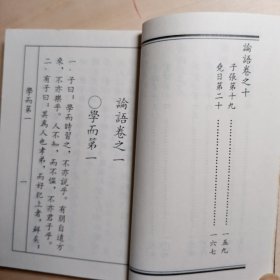 論語卷之十
子張第十九……一五九
堯曰第二十……一六七
論語卷之一
○學而第一
一．子曰：學而時習之，不亦說乎。有朋自遠方
來，不亦樂乎。人不知，而不慍，不亦君子乎。
二．有子曰：其為人也孝弟，而好犯上者，鮮矣；
學而第一
一